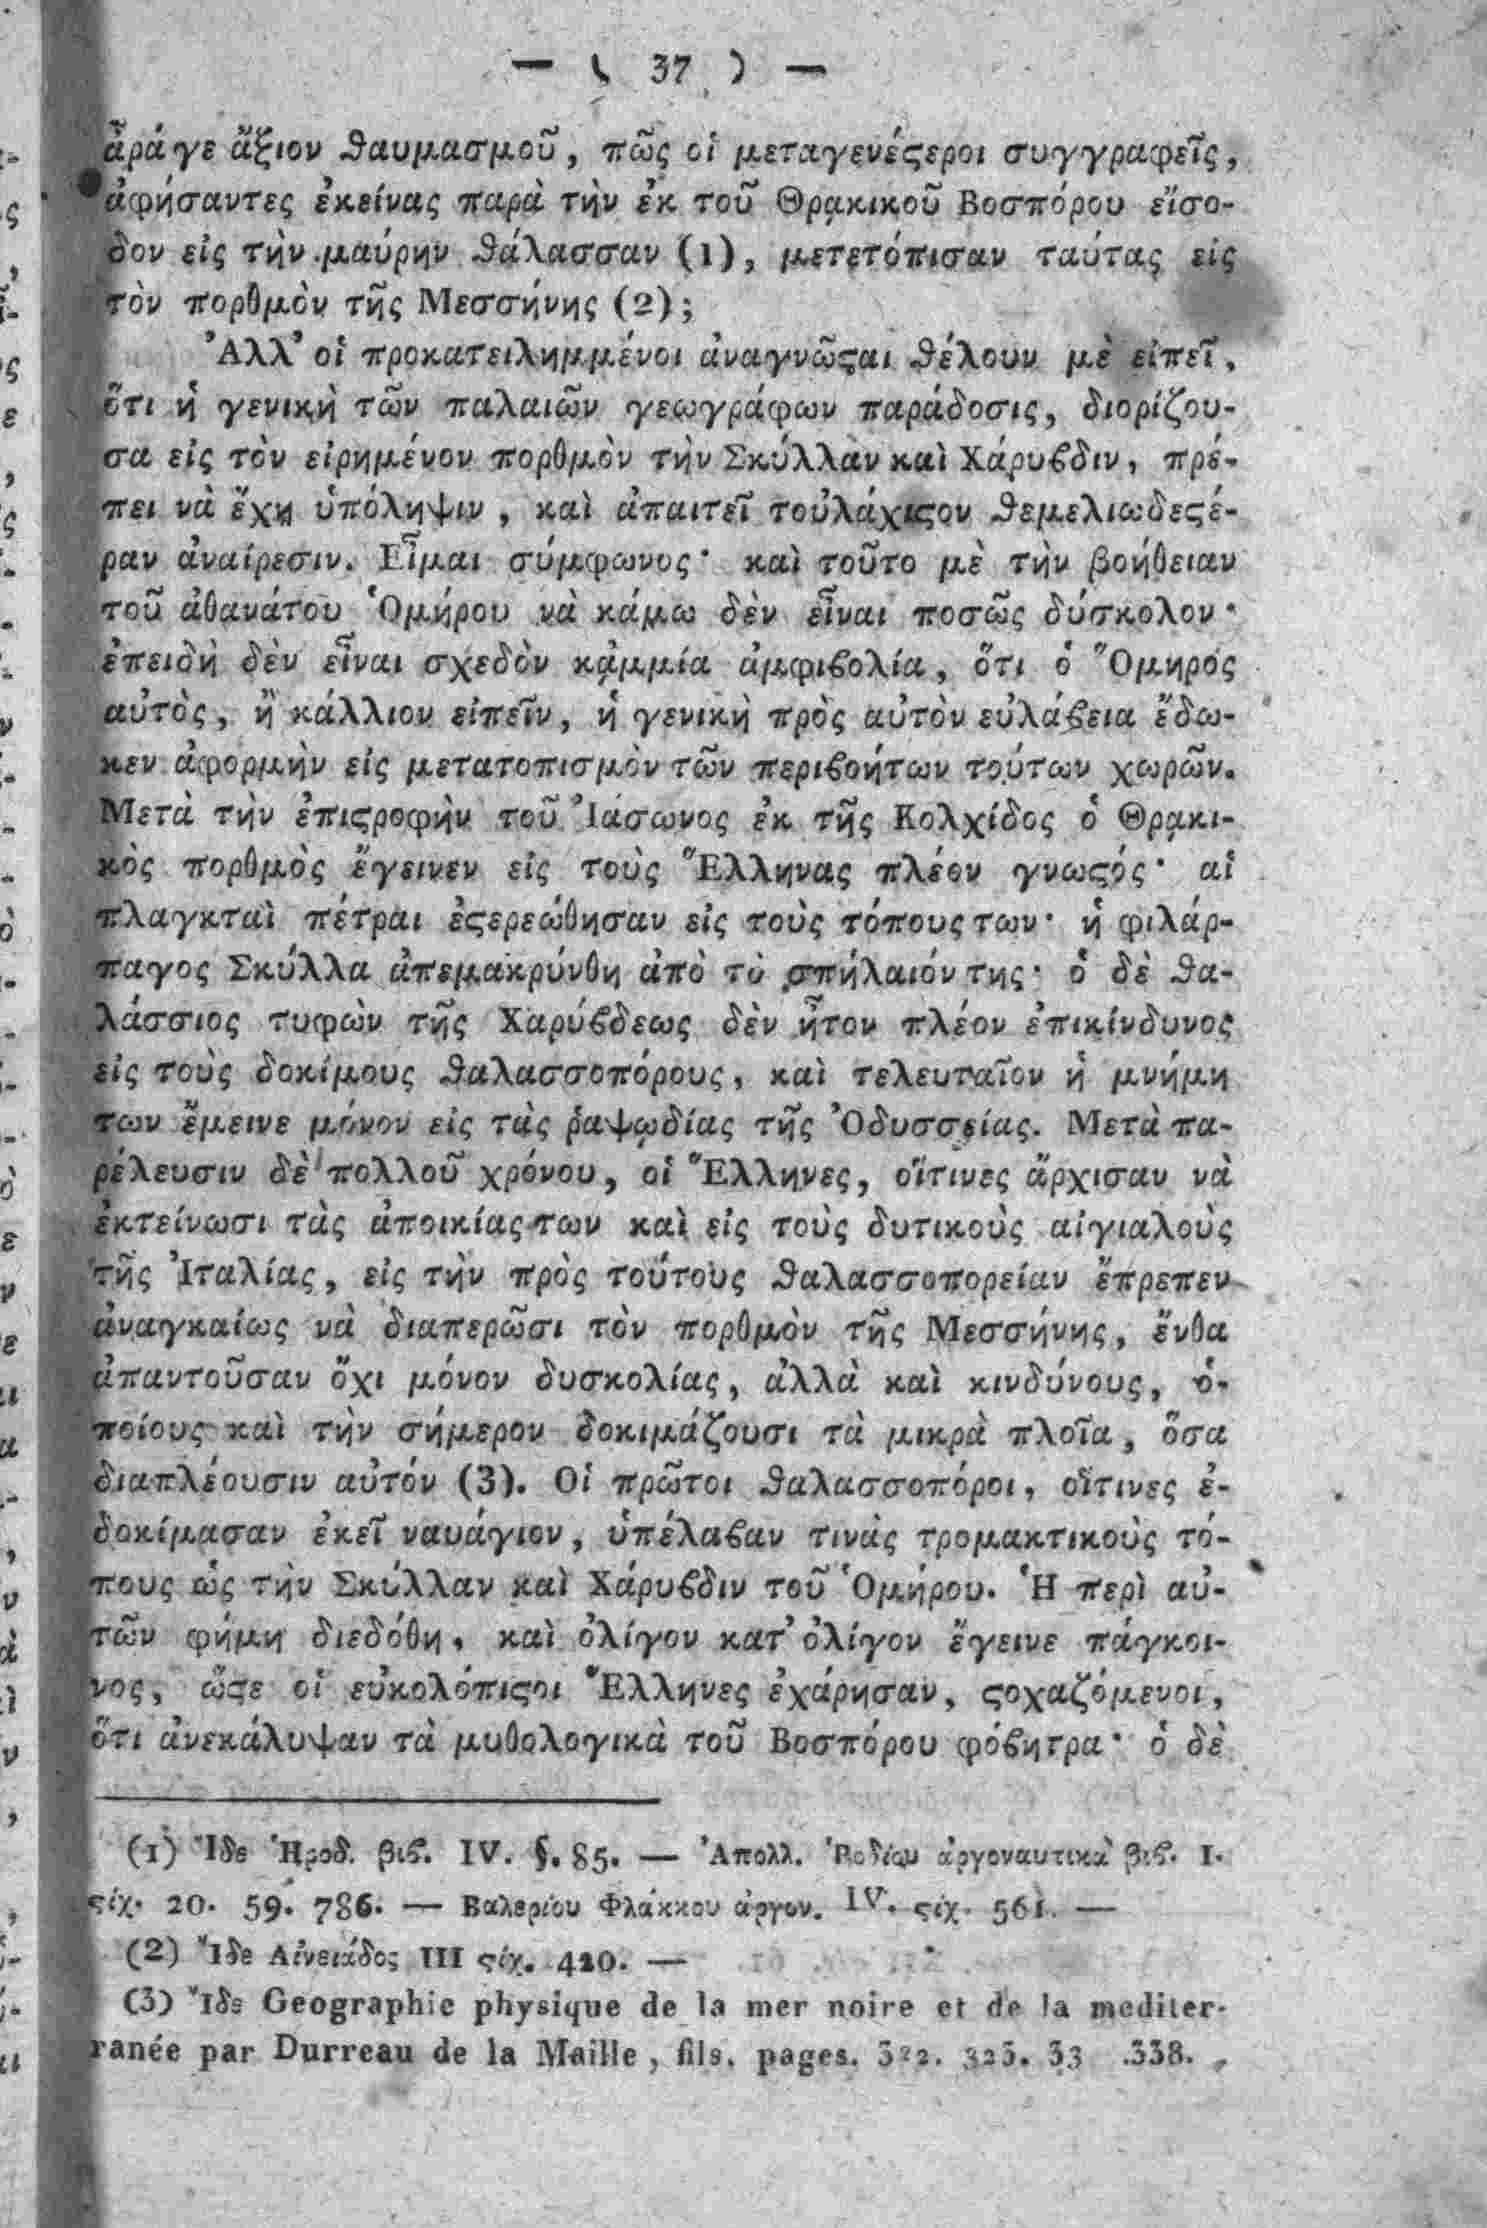 — ( 37 ) —
ἆράγε ἄξιον ϑαυμασμοῦ, πῶς οἱ μεταγενέςεροι συγγραφεῖς,
ἀφήσαντες ἐκείνας παρὰ τὴν ἐκ τοῦ Θρᾳκικοῦ Βοσπόρου εἴσο-
δον εἰς τὴν μαύρην ϑάλασσαν (1), μετετόπισαν ταύτας εἰς
τὸν πορθμὸν τῆς Μεσσήνης (2);
Ἀλλ' οἱ προκατειλημμένοι ἀναγνῶςαι ϑέλουν μὲ εἰπεῖ,
ὅτι ἡ γενικὴ τῶν παλαιῶν γεωγράφων παράδοσις, διορίζου-
σα εἰς τὸν εἰρημένον πορθμὸν τὴν Σκύλλαν καὶ Χάρυβδιν, πρέ-
πει νὰ ἔχῃ ὑπόληψιν, καὶ ἀπαιτεῖ τοὐλάχιςον ϑεμελιωδεςέ-
ραν ἀναίρεσιν. Εἶμαι σύμφωνος· καὶ τοῦτο μὲ τὴν βοήθειαν
τοῦ ἀθανάτου Ὁμήρου νὰ κάμω δὲν εἶναι ποσῶς δύσκολον·
ἐπειδὴ δὲν εἶναι σχεδὸν κᾀμμία ἀμφιβολία, ὅτι ὁ Ὅμηρος
αὐτὸς, ἢ κάλλιον εἰπεῖν, ἡ γενικὴ πρὸς αὐτὸν εὐλάβεια ἔδω-
κεν ἀφορμὴν εἰς μετατοπισμὸν τῶν περιβοήτων τούτων χωρῶν.
Μετὰ τὴν ἐπιςροφὴν τοῦ Ἰάσωνος ἐκ τῆς Κολχίδος ὁ Θρᾳκι-
κὸς πορθμὸς ἔγεινεν εἰς τοὺς Ἕλληνας πλέον γνωςός· αἱ
πλαγκταὶ πέτραι ἐςερεώθησαν εἰς τοὺς τόπους των· ἡ φιλάρ-
παγος Σκύλλα ἀπεμακρύνθη ἀπὸ τὸ σπήλαιόν της· ὁ δὲ ϑα-
λάσσιος τυφὼν τῆς Χαρύβδεως δὲν ἦτον πλέον ἐπικίνδυνος
εἰς τοὺς δοκίμους ϑαλασσοπόρους, καὶ τελευταῖον ἡ μνήμη
των ἔμεινε μόνον εἰς τὰς ῥαψῳδίας τῆς Ὀδυσσείας. Μετὰ πα-
ρέλευσιν δὲ πολλοῦ χρόνου, οἱ Ἕλληνες, οἵτινες ἄρχισαν νὰ
ἐκτείνωσι τὰς ἀποικίας των καὶ εἰς τοὺς δυτικοὺς αἰγιαλοὺς
τῆς Ἰταλίας, εἰς τὴν πρὸς τούτους ϑαλασσοπορείαν ἔπρεπεν
ἀναγκαίως νὰ διαπερῶσι τὸν πορθμὸν τῆς Μεσσήνης, ἔνθα
ἀπαντοῦσαν ὄχι μόνον δυσκολίας, ἀλλὰ καὶ κινδύνους, ὁ-
ποίους καὶ τὴν σήμερον δοκιμάζουσι τὰ μικρὰ πλοῖα, ὅσα
διαπλέουσιν αὐτόν (3). Οἱ πρῶτοι ϑαλασσοπόροι, οἵτινες ἐ-
δοκίμασαν ἐκεῖ ναυάγιον, ὑπέλαβαν τινὰς τρομακτικοὺς τό-
πους ὡς τὴν Σκύλλαν καὶ Χάρυβδιν τοῦ Ὁμήρου. Ἡ περὶ αὐ-
τῶν φήμη διεδόθη, καὶ ὀλίγον κατ' ὀλίγον ἔγεινε πάγκοι-
νος, ὥςε οἱ εὐκολόπιςοι Ἕλληνες ἐχάρησαν, ςοχαζόμενοι,
ὅτι ἀνεκάλυψαν τὰ μυθολογικὰ τοῦ Βοσπόρου φόβητρα· ὁ δὲ
(1) Ἴδε Ἡροδ. βιβ. IV. §. 85. — Ἀπολλ. Ῥοδίου ἀργοναυτικὰ βιβ. I.
ςίχ. 20. 59. 786. — Βαλερίου Φλάκκου ἀργον. IV. ςίχ. 561. —
(2) Ἴδε Αἰνειάδος III ςίχ. 420. —
(3) Ἴδε Geographie physique de la mer noire et de la mediter-
ranée par Durreau de la Maille, fils. pages. 322. 325. .338.